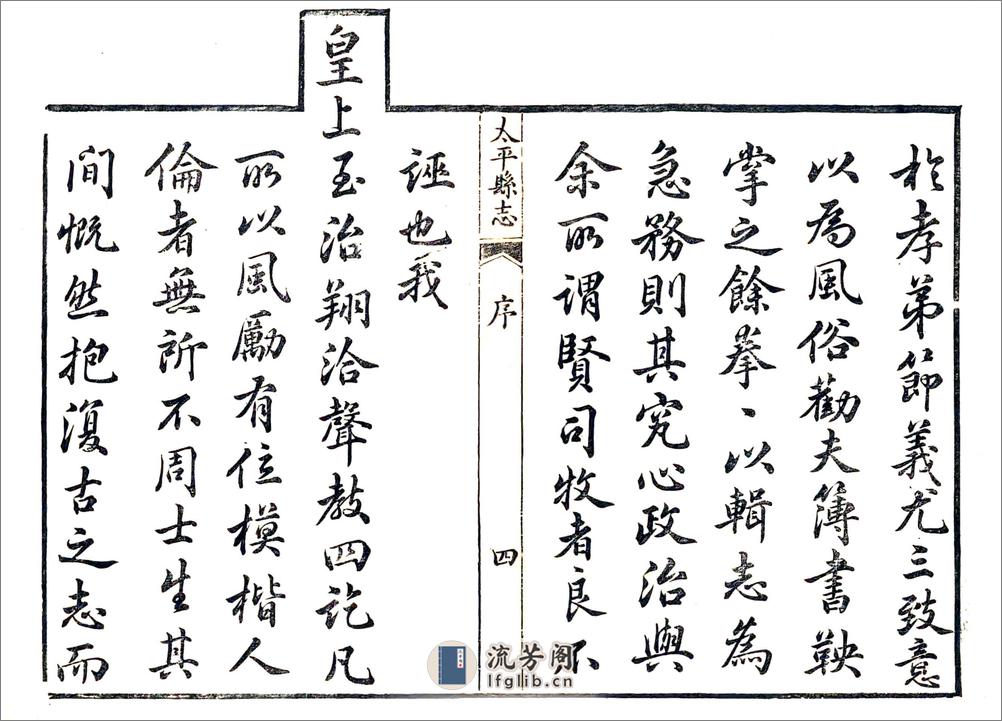 於孝弟節義尤三致意
以為風俗勸夫簿書鞅
掌之餘拳〻以輯志為
急務則其究心政治與
余所謂賢司牧者良不
太平縣志
序
四
誣也我
皇上至治翔洽聲教四訖凡
所以風勵有位模楷人
倫者無所不周士生其
間慨然抱復古之志而
流芳阁
lfglib.cn